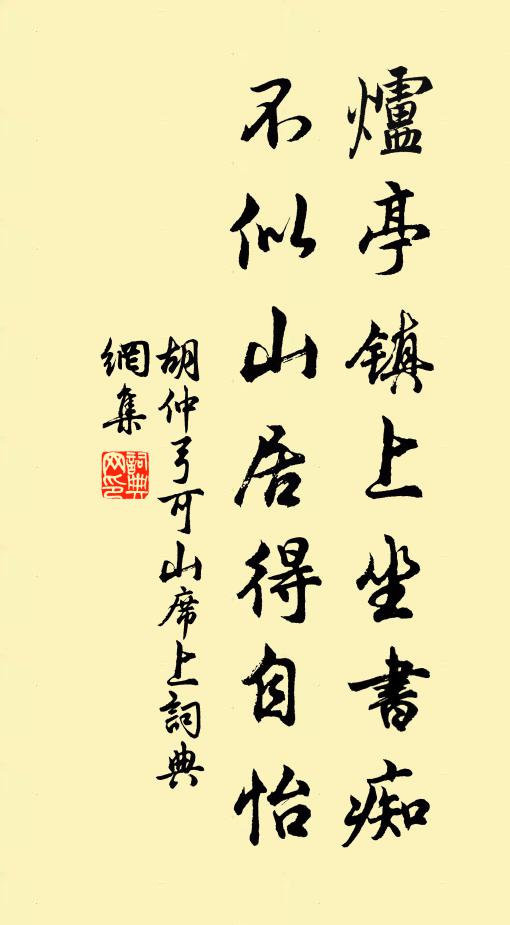 爐亭鎮上坐書痴
不似山居得自怡
胡仲弓可山席上詞典
網集
詞典網印